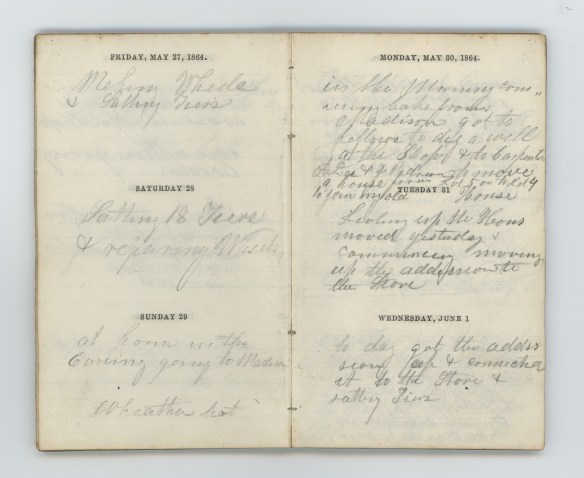 FRIDAY, MAY 27, 1864.
Wheels
& Setting Tiers
SATURDAY 28
Setting 18 Tiere
& repairing Wheels
SUNDAY 29
at home in the
Evening going to Madison
Wheather hot
MONDAY, MAY 30, 1864.
in the Morning com
back from
Madison got to
fellows to dig a well
at the Shop & to Carpenters
& to move
a house from Lot on
to join my old House
TUESDAY 31
up the Hous
moved yestuday &
commencing moving
up the addission to
the Store
WEDNESDAY, JUNE 1
to day got the addis
sion up & connected
it to the Store &
Tiers